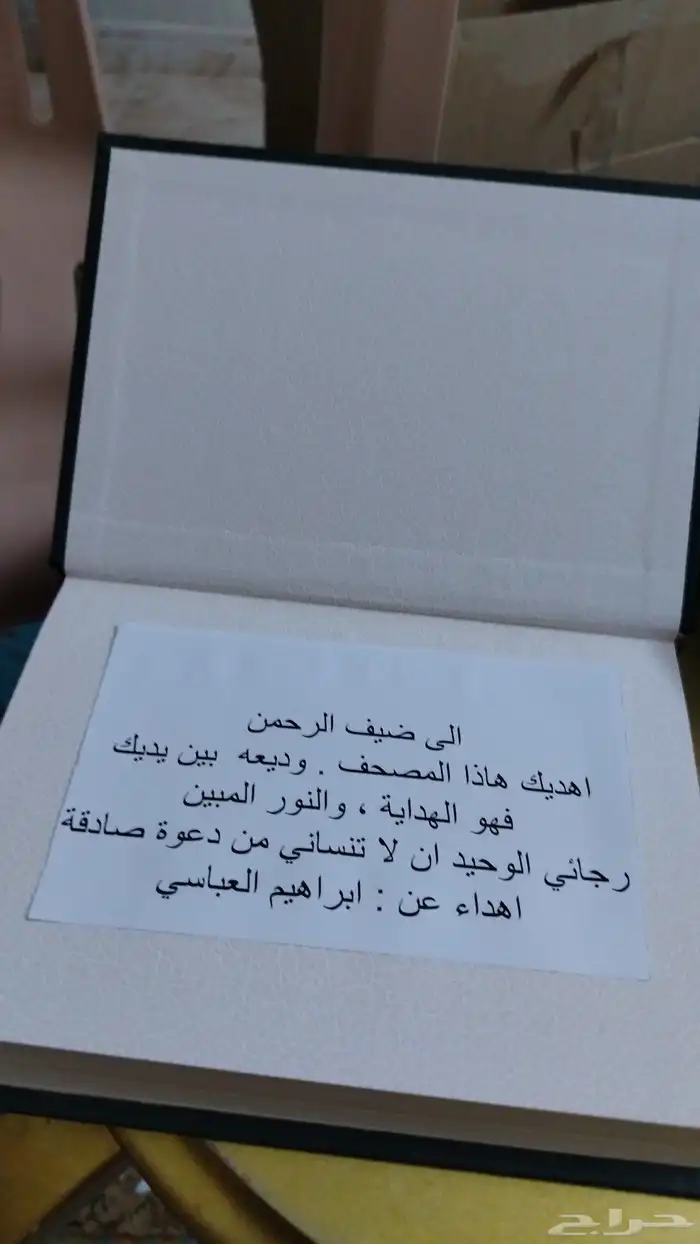 الى ضيف الرحمن
اهديك هاذا المصحف . وديعه بين يديك
فهو الهداية ، والنور المبين
رجائي الوحيد ان لا تنساني من دعوة صادقة
اهداء عن : ابراهيم العباسي
حراج